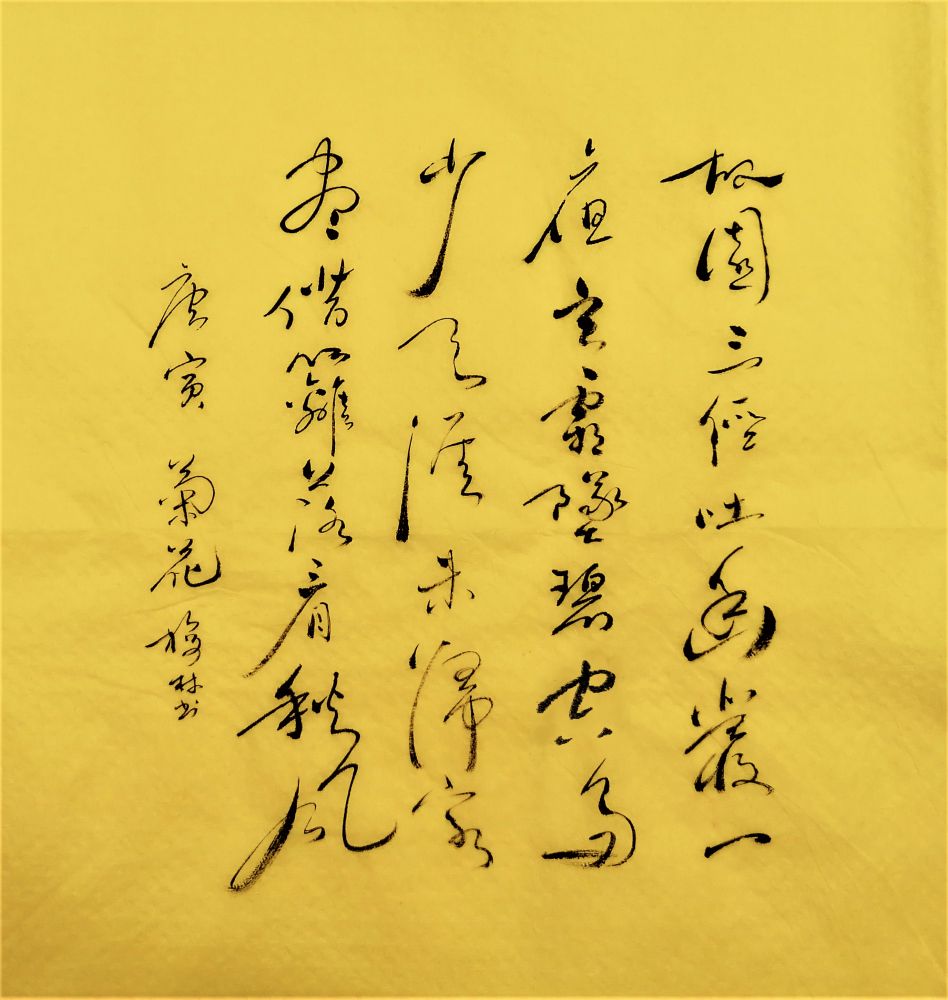 故園三徑吐幽叢一
夜玄霜墜碧空多
少天涯未歸客
盡借籬落看秋風
唐寅 菊花 梅林書